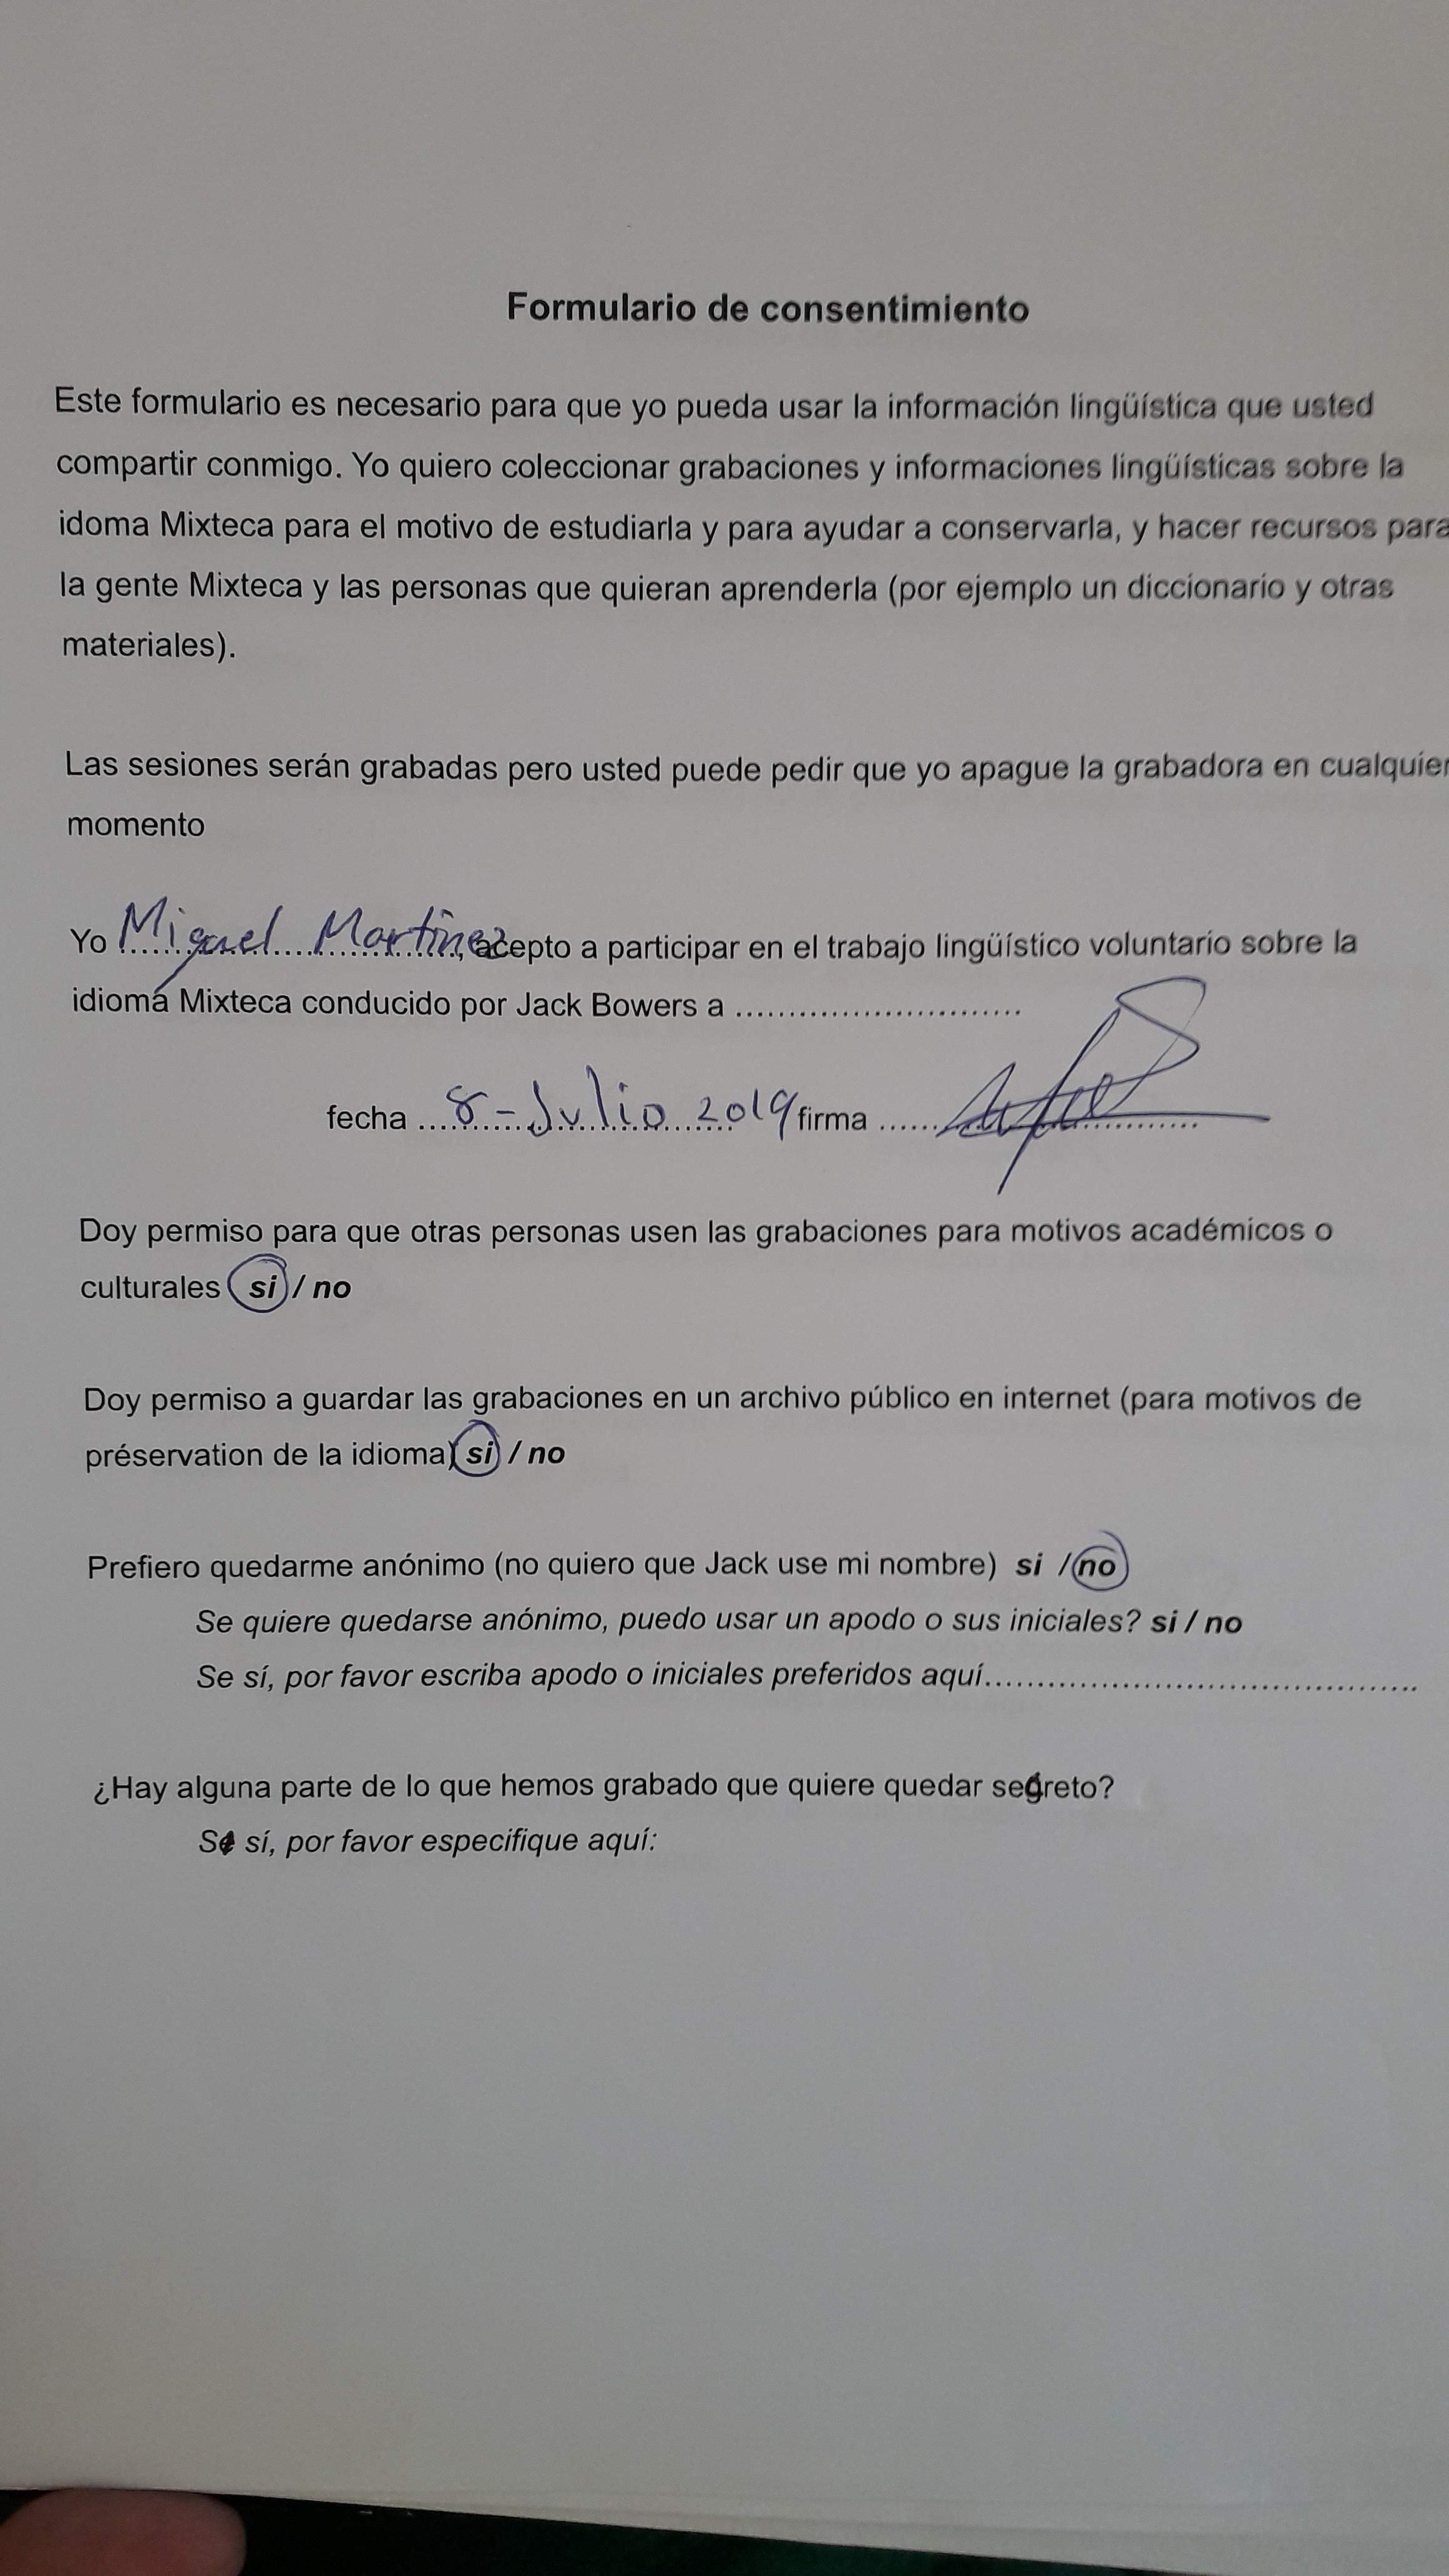 Formulario de consentimiento
Este formulario es necesario para que yo pueda usar la información lingüística que usted
compartir conmigo. Yo quiero coleccionar grabaciones y informaciones lingüísticas sobre la
idoma Mixteca para el motivo de estudiarla y para ayudar a conservarla, y hacer recursos para
la gente Mixteca y las personas que quieran aprenderla (por ejemplo un diccionario y otras
materiales).
Las sesiones serán grabadas pero usted puede pedir que yo apague la grabadora en cualquier
momento
Yo Miguel Martinez, acepto a participar en el trabajo lingüístico voluntario sobre la
idioma Mixteca conducido por Jack Bowers a ...........................
fecha 8-Julio 2019 firma
Doy permiso para que otras personas usen las grabaciones para motivos académicos o
culturales si / no
Doy permiso a guardar las grabaciones en un archivo público en internet (para motivos de
préservation de la idioma) si / no
Prefiero quedarme anónimo (no quiero que Jack use mi nombre) si / no
Se quiere quedarse anónimo, puedo usar un apodo o sus iniciales? si / no
Se sí, por favor escriba apodo o iniciales preferidos aquí.........................................
¿Hay alguna parte de lo que hemos grabado que quiere quedar secreto?
Si sí, por favor especifique aquí: